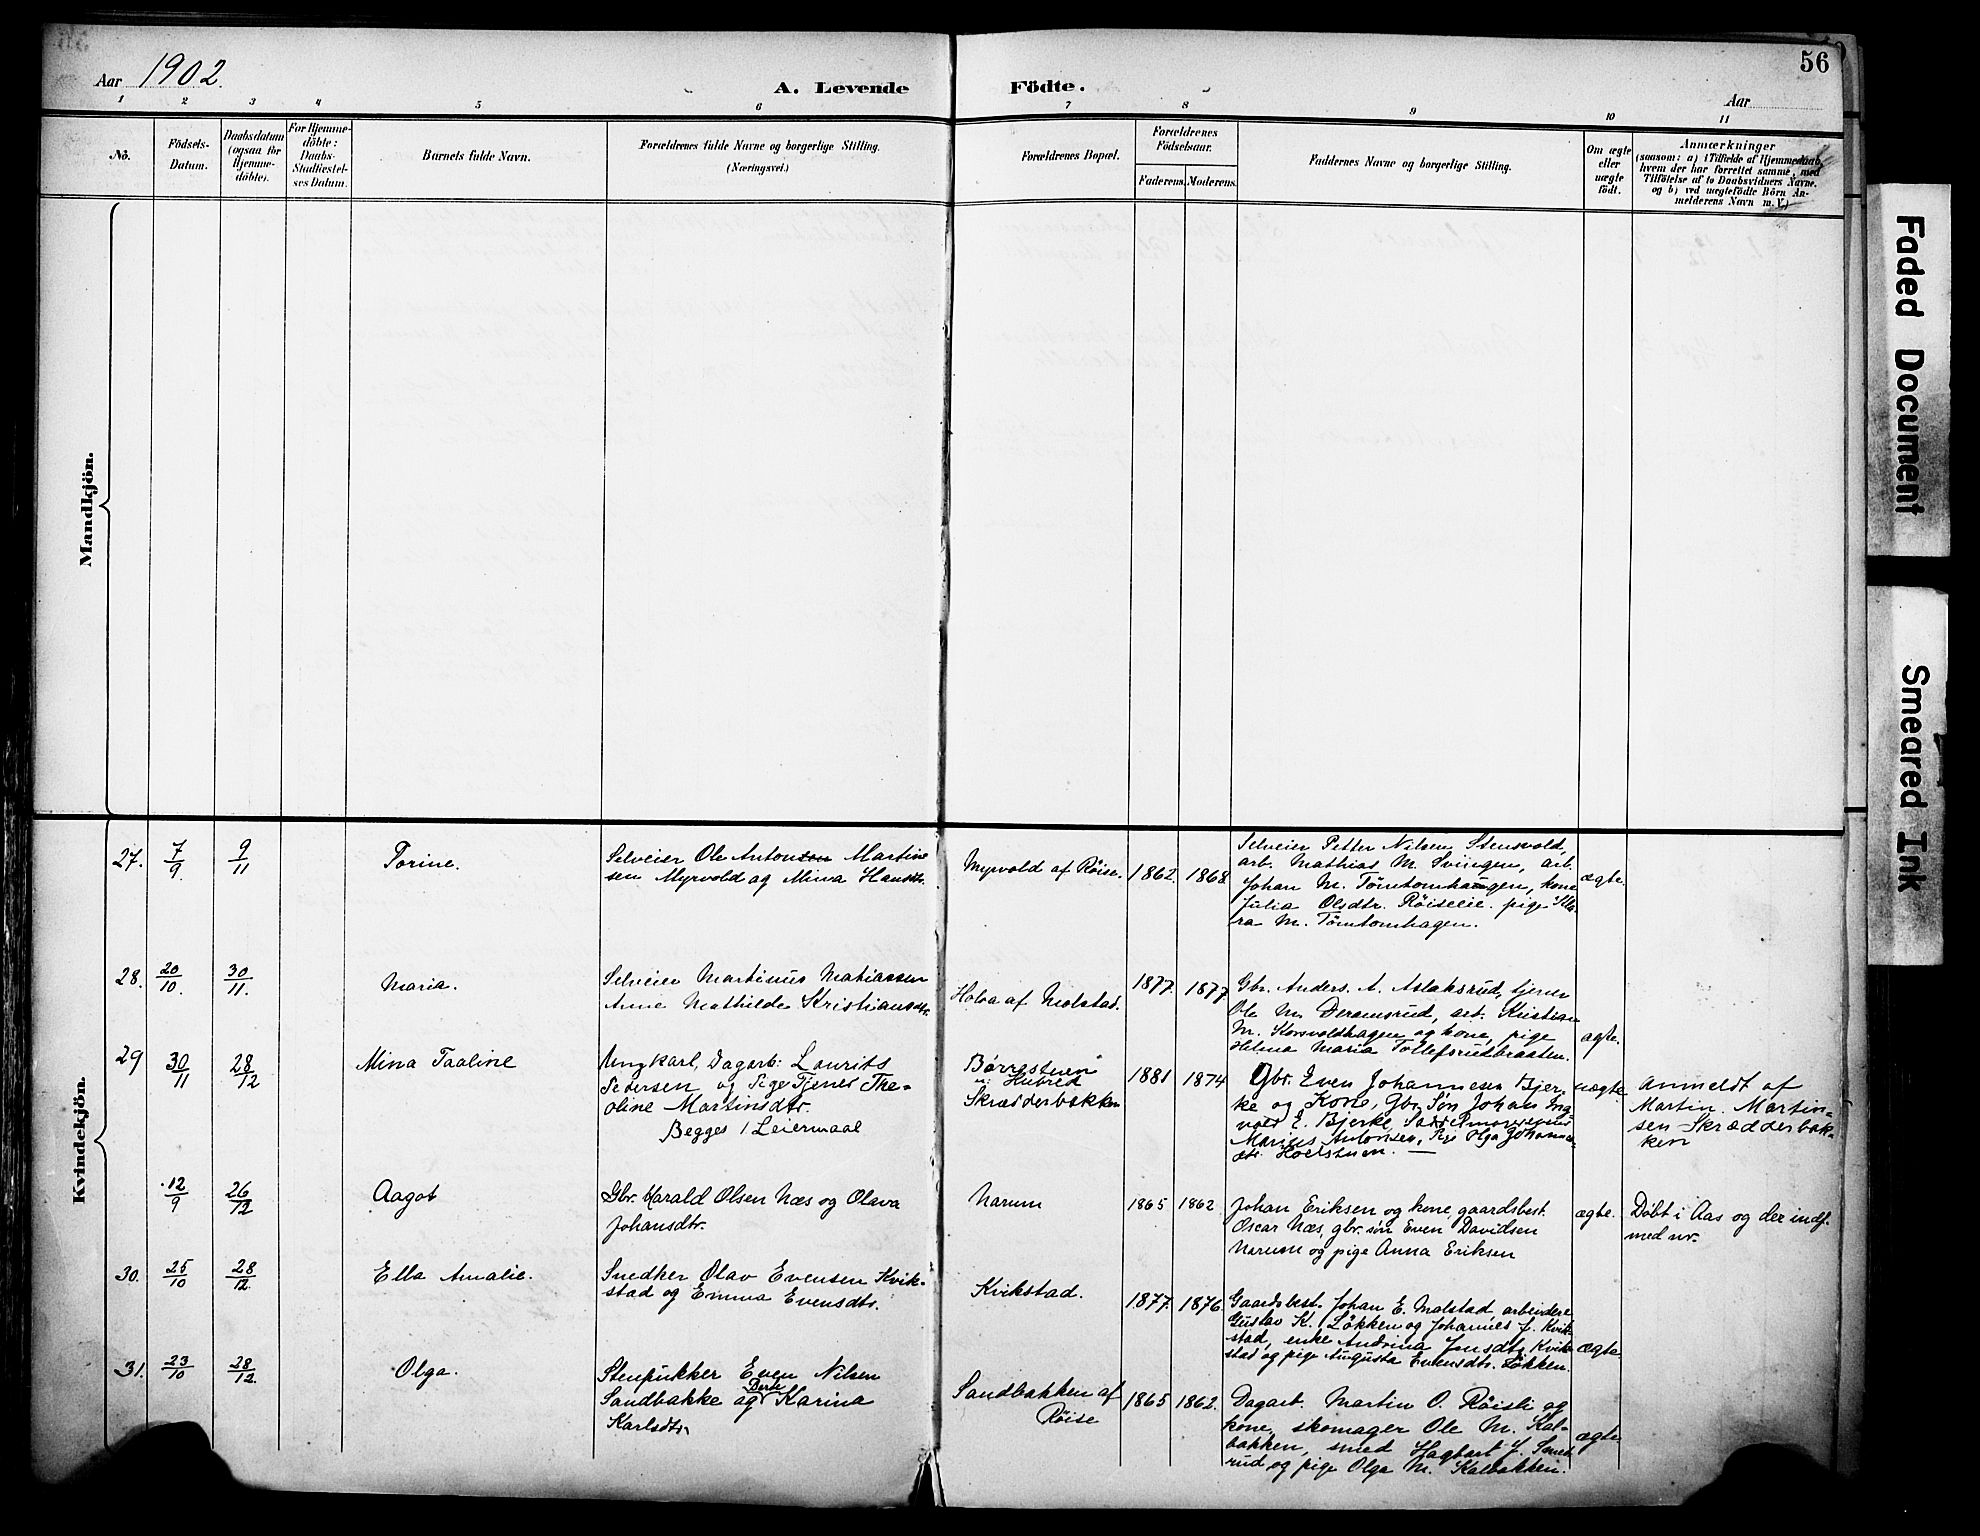 56
Aar 1902.
A. Levende Födte.
Aar
1 2 3 4 5 6 7 8 9 10 11
No.
Födsels-
Datum.
Daabsdatum
(ogsaa for
Hjemme-
döbte).
For Hjemme-
döbte:
Daabs-
Stadfæstel-
ses Datum.
Barnets fulde Navn.
Forældrenes fulde Navne og borgerlige Stilling.
(Næringsvei.)
Forældrenes Bopæl.
Forældrenes
Födselsaar.
Faderens. Moderens.
Faddernes Navne og borgerlige Stilling.
Om ægte
eller
uægte
födt.
Anmærkninger
(saasom: a) i Tilfælde af Hjemmedaab,
hvem der har forrettet samme, med
Tilföielse af to Daabsvidners Navne,
og b) ved uægtefödte Börn An-
melderens Navn m. V.)
Mandkjön.
Kvindekjön.
27.
7/9.
9/11
Torine.
Selveier Ole Antonsen Martine
sen Myrvold og Mina Hansdtr.
Myrvold af Röise.
1862.
1868
Selveier Petter Nilsen Stensvold,
arb. Mathias M. Sviingen, arb.
Johan M. Tömtomhaugen, kone
Julia Olsdtr. Röiseeie. pige Kla-
ra M. Tömtomhagen.
ægte.
28.
20/10.
30/11.
Maria.
Selveier Martinus Matiassen
Anne Mathilde Kristiansdtr.
Holoa af Molstad.
1877.
1877
Gbr. Anders A. Aslaksrud, tjener
Ole M. Deramsrud, arb. Kristian
M. Korsvoldhagen og kone, pige
Helma Maria Tollefsrudbraaten.
ægte.
29
30/11
28/12
Mina Taaline
Ungkarl, Dagarb: Laurits
Pedersen og Pige Tjener The-
oline Martinsdtr.
Begges 1 Leiermaal
Børrestuen
u: Hubred
Skrædderbakken
1881
1874
Gbr. Even Johannesen Bjer
ke og Kone, Gbr Søn Johan Ing-
vold E. Bjerke, Saddelmagersvend
Marius Antonsen, Pige Olga Johannes
dtr. Hoelstuen. —
uægte
Anmeldt af
Martin Martin-
sen Skrædderbak-
ken
12/9
26/12
Aagot
Gbr. Harald Olsen Næs og Olava
Johansdtr.
Narum
1865
1862
Johan Eriksen og kone, gaardsbest.
Oscar Næs, gbr. søn Even Davidsen
Narum og pige Anna Eriksen
ægte.
Døbt i Aas og der indf.
med nr.
30.
25/10
28/12.
Ella Amalie.
Snedker Olav Evensen Kvik-
stad og Emma Evensdtr.
Kvikstad.
1877.
1876.
Gaardsbest. Johan E. Malstad, arbeidere
Gustav K. Løkken og Johannes J. Kvik-
stad, enke Andrina Jensdtr Kvik-
stad og pige Augusta Evensdtr. Løkken.
ægte.
31.
23/10
28/12.
Olga.
Stenpukker Even Nilsen
Sandbakke og Berte Karina
Karlsdtr.
Sandbakken af
Röise
1865
1862.
Dagarb. Martin O. Röisli og
kone, skomager Ole M. Kal-
bakken, smed Hagbart J. Smed
rud og pige Olga M. Kalbakken.
ægte
Faded Document
Smeared Ink